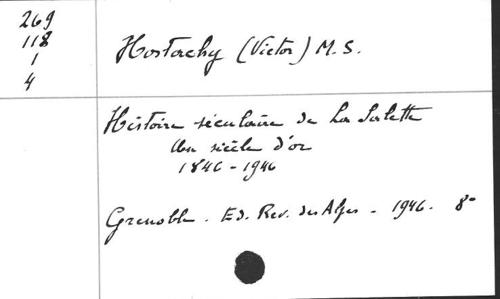 269
118
1
4
Hostachy (Victor) M. S.
Histoire séculaire de La Salette
Un siècle d'or
1846 - 1946
Grenoble. Ed. Rev. des Alpes - 1946. 8°